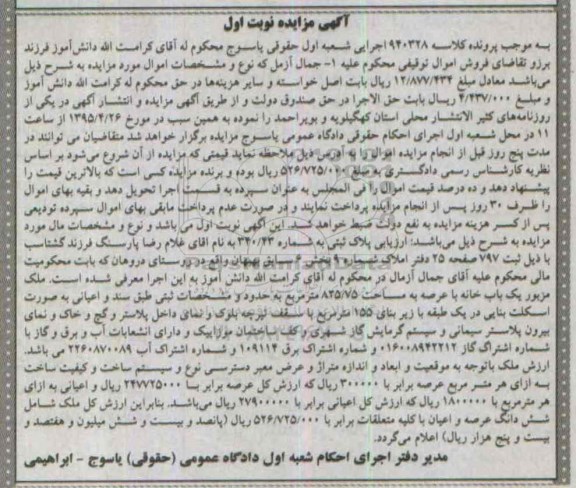 آگهی مزایده نوبت اول
به موجب پرونده کلاسه ۹۴۰۳۲۸ اجرایی شعبه اول حقوقی یاسوج محکوم له آقای کرامت الله دانش‌آموز فرزند
برزو تقاضای فروش اموال توقیفی محکوم علیه ۱- جمال آزمل که نوع و مشخصات اموال مورد مزایده به شرح ذیل
می‌باشد معادل مبلغ ۱۲/۸۷۷/۴۳۴ ریال بابت اصل خواسته و سایر هزینه‌ها در حق محکوم له کرامت الله دانش آموز
و مبلغ ۲/۴۳۷/۰۰۰ ریال بابت حق الاجرا در حق صندوق دولت و از طریق آگهی مزایده و انتشار آگهی در یکی از
روزنامه‌های کثیر الانتشار محلی استان کهگیلویه و بویراحمد را نموده به همین سبب در مورخ ۱۳۹۵/۴/۲۶ از ساعت
۱۱ در محل شعبه اول اجرای احکام حقوقی دادگاه عمومی یاسوج مزایده برگزار خواهد شد متقاضیان می توانند در
مدت پنج روز قبل از انجام مزایده اموال را به آدرس ذیل ملاحظه نماید قیمتی که مزایده از آن شروع می‌شود بر اساس
نظریه کارشناس رسمی دادگستری به مبلغ ۵۲۶/۷۲۵/۰۰۰ ریال بوده و برنده مزایده کسی است که بالاترین قیمت را
پیشنهاد دهد و ده درصد قیمت اموال را فی المجلس به عنوان سپرده به قسمت اجرا تحویل دهد و بقیه بهای اموال
را ظرف ۳۰ روز پس از انجام مزایده پرداخت نمایند و در صورت عدم پرداخت مابقی بهای اموال سپرده تودیعی
پس از کسر هزینه مزایده به نفع دولت ضبط خواهد شد. این آگهی نوبت اول می باشد و نوع و مشخصات مال مورد
مزایده به شرح ذیل می‌باشد: ارزیابی پلاک ثبتی به شماره ۳۴۰/۴۳ به نام اقای غلام رضا پارسنگ فرزند گشتاسب
با ذیل ثبت ۷۹۷ صفحه ۲۵ دفتر املاک شماره بخش واقع در روستای دروهان که بابت محکومیت
مالی محکوم علیه آقای جمال آزمال در محکوم له آقای کرامت الله دانش آموز به این اجرا معرفی شده است. ملک
مزبور یک باب خانه با عرصه به مساحت ۸۲۵/۷۵ مترمربع به حدود و مشخصات ثبتی طبق سند و اعیانی به صورت
اسکلت بنایی در یک طبقه با زیر بنای ۱۵۵ مترمربع با سقف تیرچه بلوک و نمای داخل پلاستر و گچ و خاک و نمای
بیرون پلاستر سیمانی و سیستم گرمایش گاز شهری و کف ساختمان موزاییک و دارای انشعابات آب و برق و گاز با
شماره اشتراک گاز ۰۱۶۰۰۸۹۴۲۲۱۲ و شماره اشتراک برق ۱۰۹۱۱۴ و شماره اشتراک آب ۲۲۶۰۸۷۰۰۸۹ می باشد.
ارزش ملک باتوجه به موقعیت و ابعاد و اندازه متراژ و عرض معبر دسترسی نوع و سیستم ساخت و کیفیت ساخت
به ازای هر متر مربع عرصه برابر با ۳۰۰۰۰۰ ریال که ارزش کل عرصه برابر با ۲۴۷۷۲۵۰۰۰ ریال و اعیانی به ازای
هر مترمربع با ۱۸۰۰۰۰۰ ریال که ارزش کل اعیانی برابر با ۲۷۹۰۰۰۰۰۰ ریال می‌باشد. بنابراین ارزش کل ملک شامل
شش دانگ عرصه و اعیان با کلیه متعلقات برابر با ۵۲۶/۷۲۵/۰۰۰ ریال (پانصد و بیست و شش میلیون و هفتصد و
بیست و پنج هزار ریال) اعلام می‌گردد.
مدیر دفتر اجرای احکام شعبه اول دادگاه عمومی (حقوقی) یاسوج - ابراهیمی